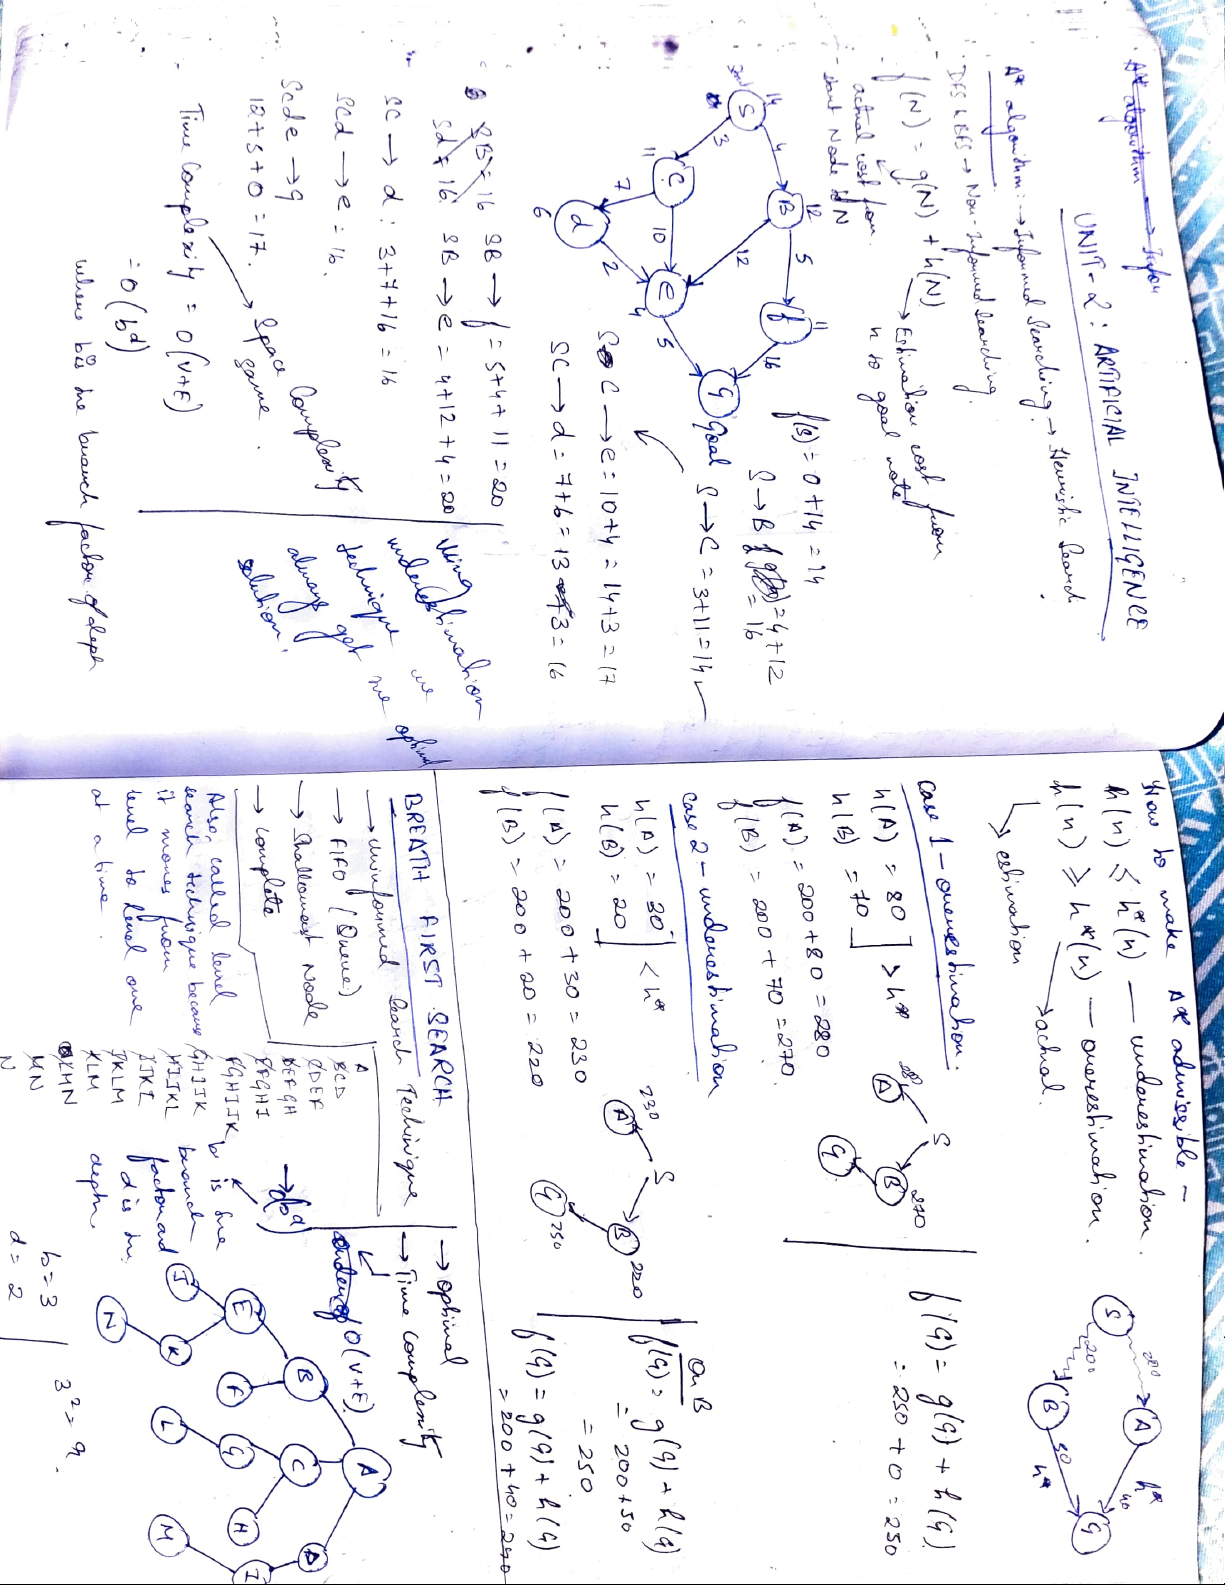 UNIT-2 : ARTIFICIAL INTELLIGENCE
A* algorithm :→ Informed Searching → Heuristic Search
DFS & BFS → Non-Informed Searching.
f(N) = g(N) + h(N)
→ Estimation cost from
n to goal node
actual cost from
start Node to N
S
14
4
3
B
12
C
11
5
12
10
7
f
11
d
6
2
e
4
5
16
G Goal
f(S) = 0+14 = 14
S → B = 4+12
= 16
S → C = 3+11 = 14
S C → e = 10+4 = 14+3 = 17
SC → d = 7+6 = 13 +3 = 16
SB = 16 SB → f = 5+4+11 = 20
Sd = 16 SB → e = 4+12+4 = 20
SC → d : 3+7+16 = 16
SCd → e = 16.
Scde → G
12+5+0 = 17.
Time Complexity = O(V+E)
Space Complexity
same.
= O(b^d)
where b is the branch factor of deph
Using
underestimation
technique we
always get the optimal
solution.
How to make A* admissible -
h(n) ≤ h*(n) — underestimation.
h(n) ≥ h*(n) — overestimation.
→ estimation
→ actual.
S
200
200
A
B
h*
40
50
h*
G
Case 1 - overestimation:
h(A) = 80 ] > h*
h(B) = 70
f(A) = 200+80 = 280
f(B) = 200+70 = 270.
S
280
A
B
270
G
f(G) = g(G) + h(G)
= 250 + 0 = 250
Case 2 - underestimation
h(A) = 30 ] < h*
h(B) = 20
f(A) = 200+30 = 230
f(B) = 200+20 = 220
S
230
A
B
220
G
250
On B
f(G) = g(G) + h(G)
= 200+50
= 250
f(G) = g(G) + h(G)
= 200+40 = 240
BREATH FIRST SEARCH
→ Uninformed Search Technique
→ FIFO (Queue)
→ Shallowest Node
→ complete
Also called level
search technique because
it moves from
level to level one
at a time.
→ optimal
→ Time complexity
O(V+E)
→ (b^d)
b is the
branch
factor and
d is the
depth.
A
BCD
CDEF
DEFGH
EFGHI
FGHIJK
GHIJK
HIJKL
IJKL
JKLM
KLM
LMN
MN
N
A
B
C
D
E
F
G
H
I
J
K
L
M
N
b=3
d=2
3² = 9.